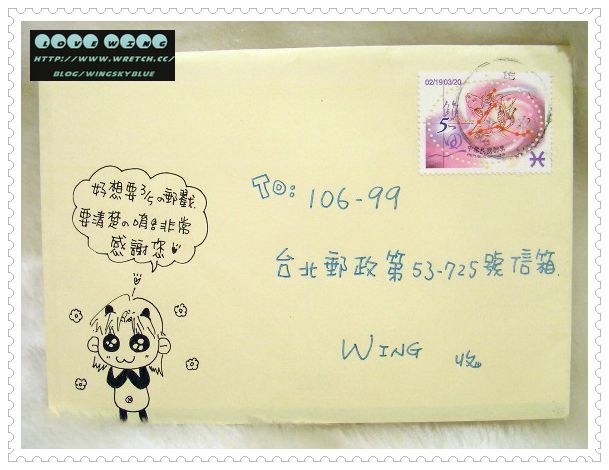 LOVE WING
HTTP://WWW.WRETCH.CC/
BLOG/WINGSKYBLUE
02/19|03/20
5
好想要3/5の郵戳
要清楚の唷非常
感謝您
TO: 106-99
台北郵政第53-725號信箱
WING 收